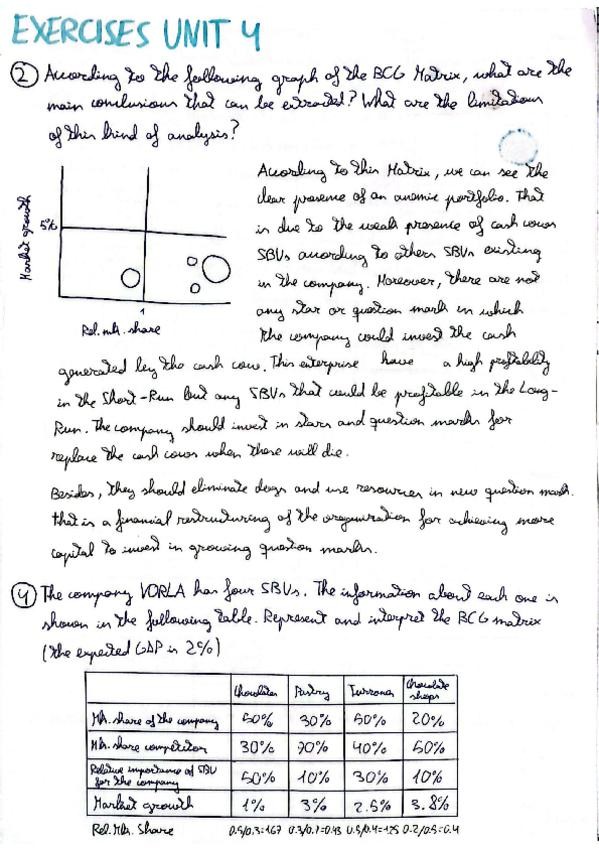 EXERCISES UNIT 4
② According to the following graph of the BCG Matrix, what are the
main conclusions that can be extracted? What are the limitations
of this kind of analysis?
Market growth
5%
1
Rel. mk. share
According to this Matrix, we can see the
clear presense of an anemic portfolio. That
is due to the weak presence of cash cows
SBUs according to others SBUs existing
in the company. Moreover, there are not
any star or question mark in which
the company could invest the cash
generated by the cash cow. This enterprise have a high profitability
in the Short-Run but any SBUs that could be profitable in the Long-
Run. The company should invest in stars and question marks for
replace the cash cows when these will die.
Besides, they should eliminate dogs and use resources in new question mark.
that is a financial restructuring of the oraganisation for achieving more
capital to invest in growing question marks.
④ The company VORLA has four SBUs. The information about each one is
shown in the following table. Represent and interpret the BCG matrix
(the expected GDP is 2%)
Chocolates Pastry Turrones Chocolate shops
Mk. share of the company 50% 30% 50% 20%
Mk. share competitor 30% 70% 40% 50%
Relative importance of SBU for the company 50% 10% 30% 10%
Market growth 1% 3% 2.5% 3.8%
Rel. Mk. Share 0.5/0.3=1.67 0.3/0.7=0.43 0.5/0.4=1.25 0.2/0.5=0.4